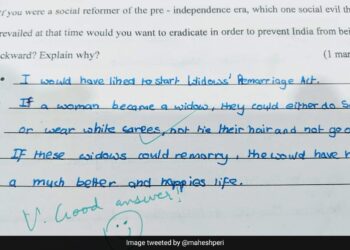 If you were a social reformer of the pre - independence era, which one social evil th
prevailed at that time would you want to eradicate in order to prevent India from bei
ckward? Explain why? (1 mar
• I would have liked to start Widows' Remarriage Act.
If a woman became a widow, they could either do S
or wear white sarees, not tie their hair and not go o
IF these widows could remarry, the would have
a much better and happies life.
V. Good answer!
Image tweeted by @maheshperi